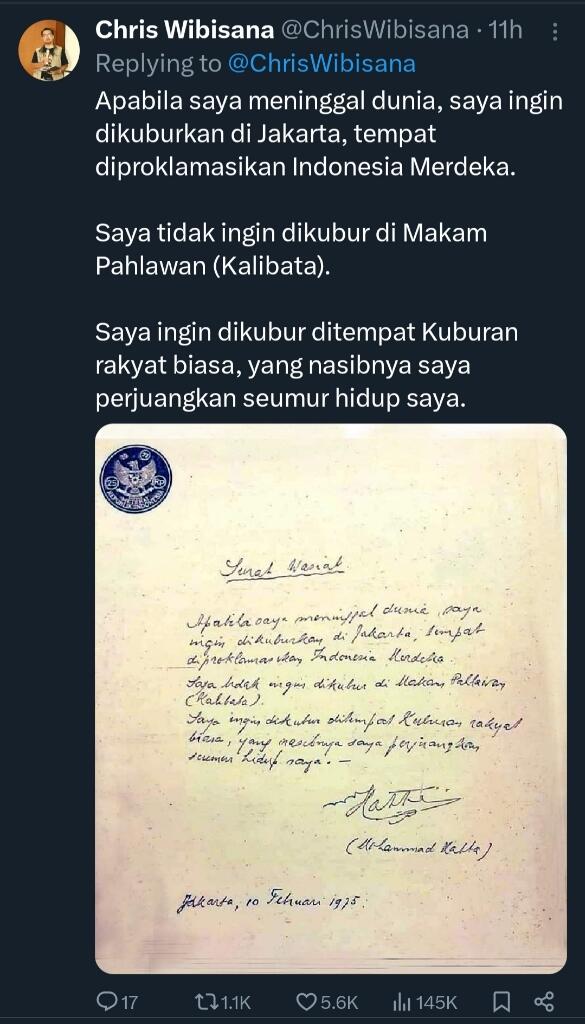 Chris Wibisana @ChrisWibisana · 11h
Replying to @ChrisWibisana
Apabila saya meninggal dunia, saya ingin
dikuburkan di Jakarta, tempat
diproklamasikan Indonesia Merdeka.
Saya tidak ingin dikubur di Makam
Pahlawan (Kalibata).
Saya ingin dikubur ditempat Kuburan
rakyat biasa, yang nasibnya saya
perjuangkan seumur hidup saya.
25 Rp
REPUBLIK INDONESIA
Surat Wasiat
Apabila saya meninggal dunia, saya
ingin dikuburkan di Jakarta, tempat
diproklamasikan Indonesia Merdeka.
Saya tidak ingin dikubur di Makam Pahlawan
(Kalibata).
Saya ingin dikubur ditempat Kuburan rakyat
biasa, yang nasibnya saya perjuangkan
seumur hidup saya. —
Hatta
(Mohammad Hatta)
Jakarta, 10 Februari 1975.
17 1.1K 5.6K 145K